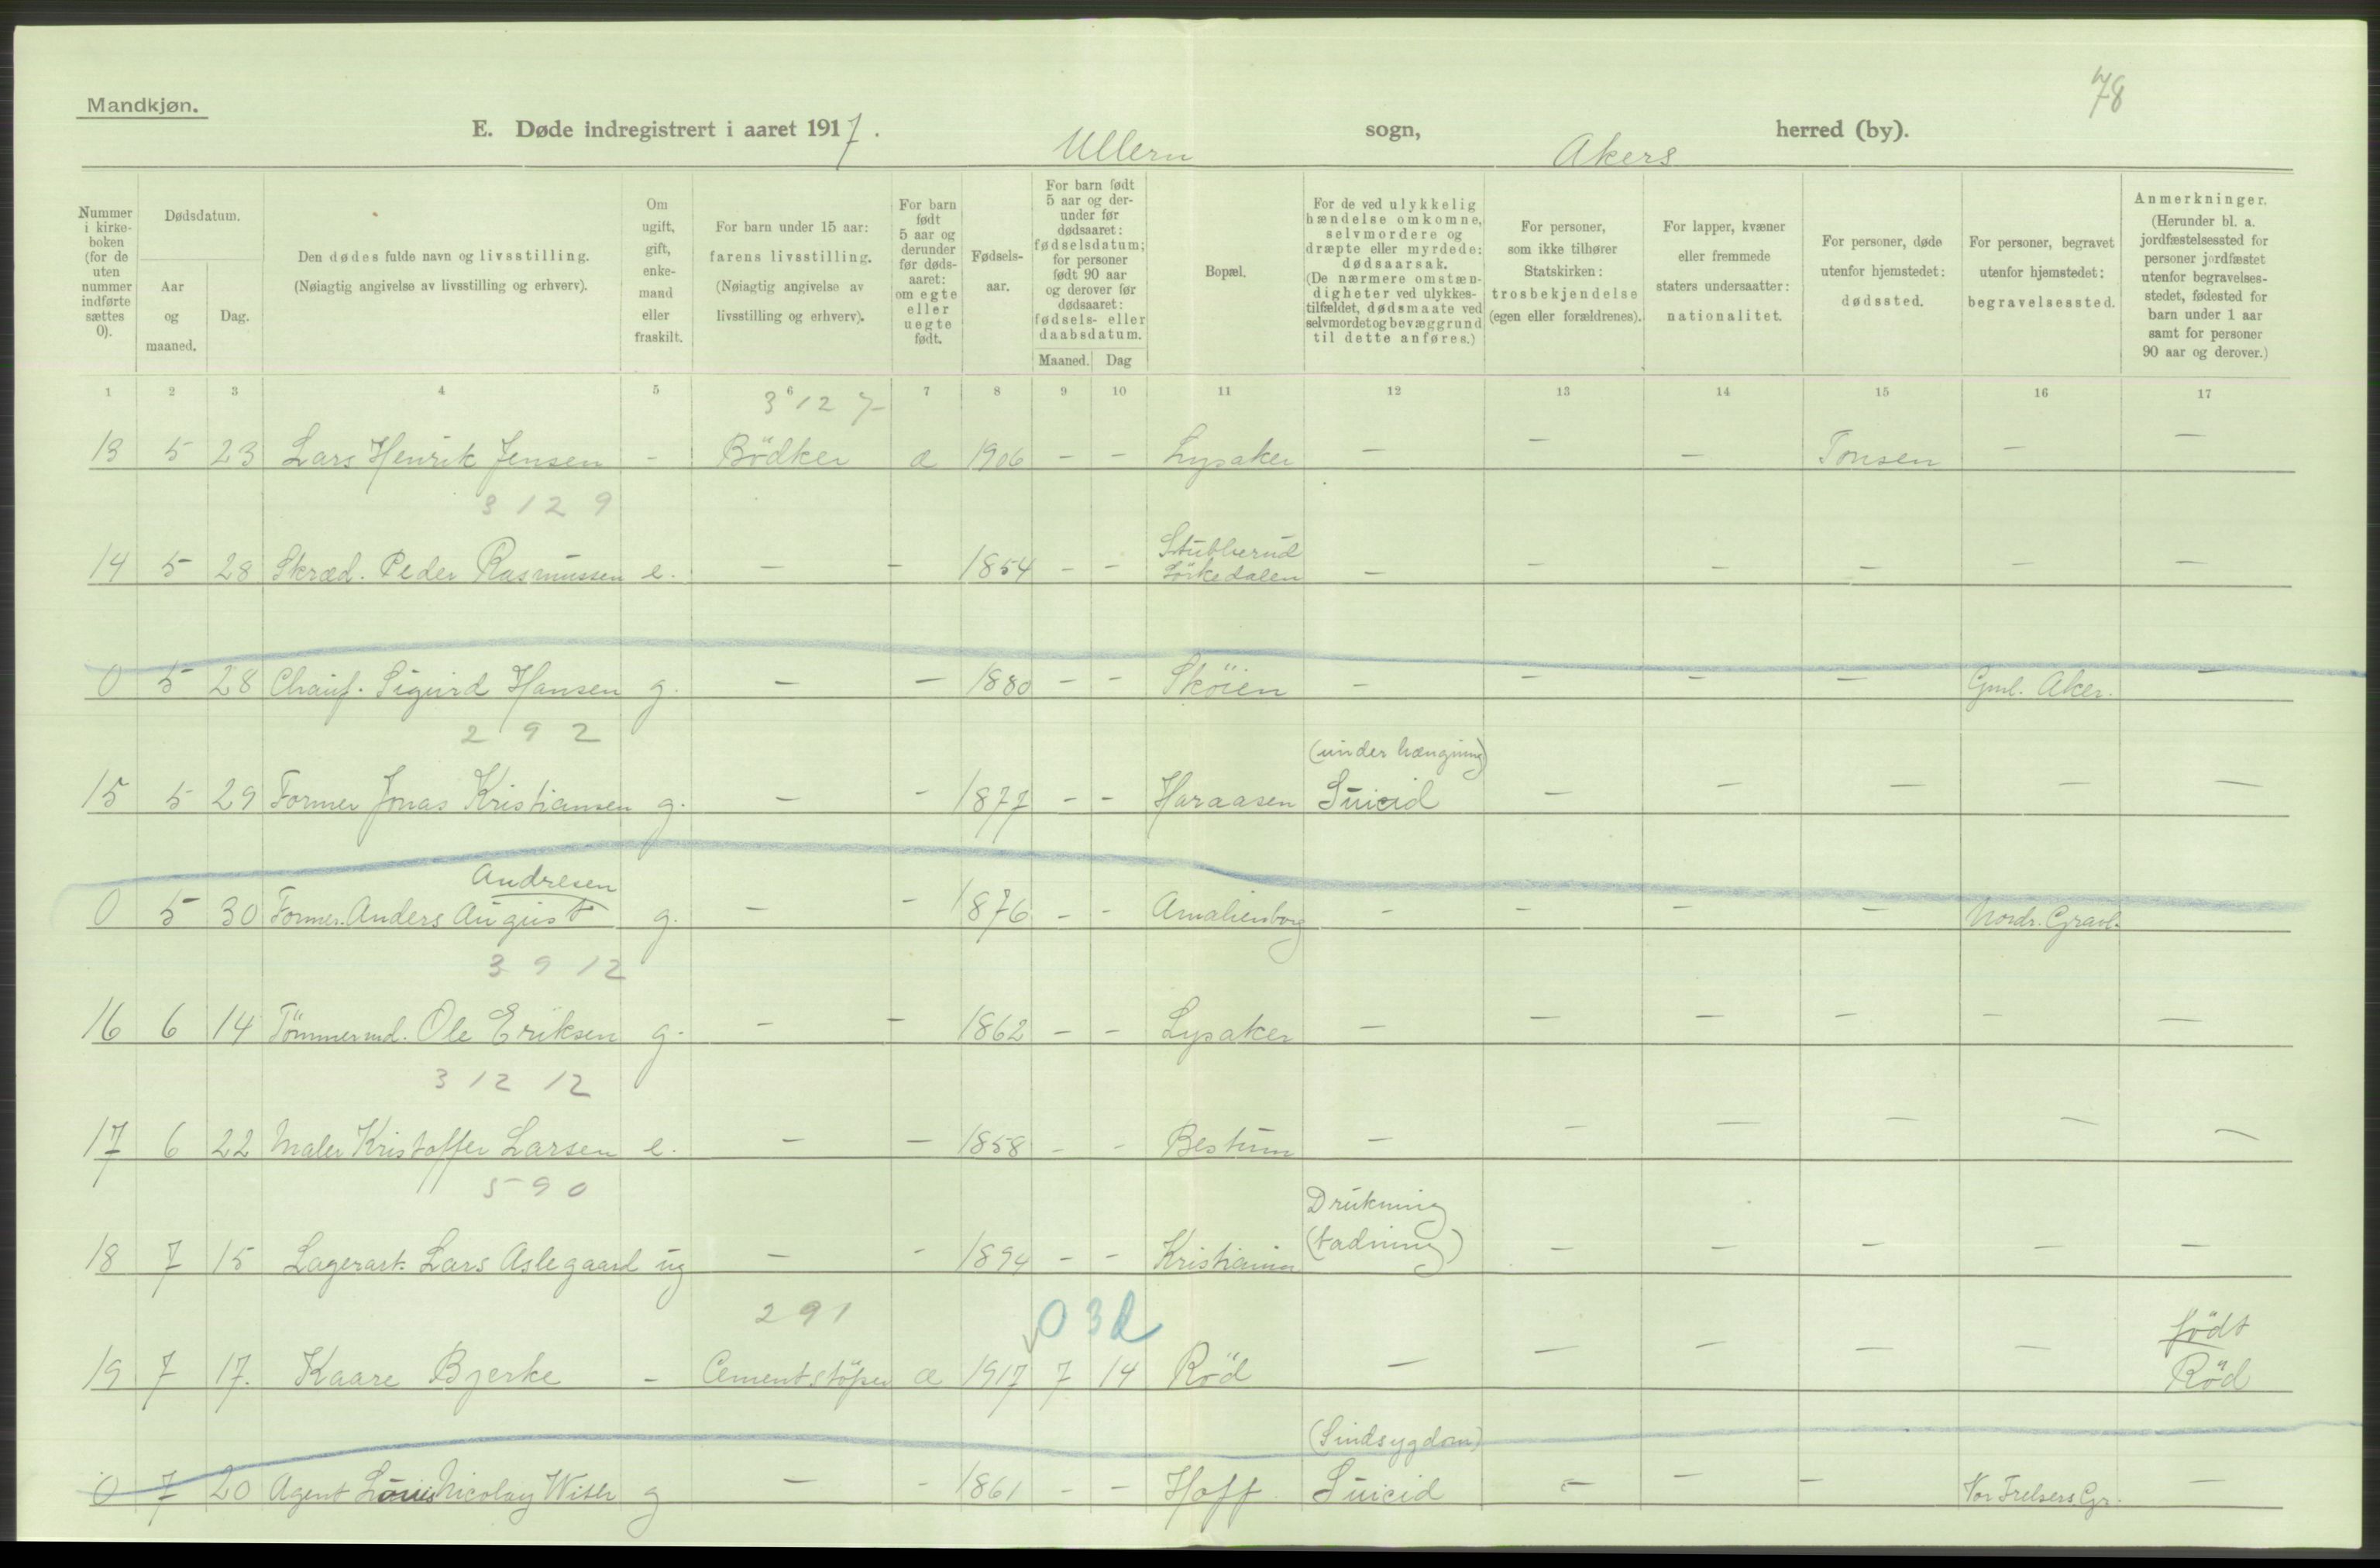 78
Mandkjøn.
E. Døde indregistrert i aaret 1917. Ullern sogn, Akers herred (by).
Nummer i kirke-boken (for de uten nummer indførte sættes 0).
Dødsdatum.
Aar og maaned.
Dag.
Den dødes fulde navn og livsstilling.
(Nøiagtig angivelse av livsstilling og erhverv).
Om ugift, gift, enke-mand eller fraskilt.
For barn under 15 aar: farens livsstilling.
(Nøiagtig angivelse av livsstilling og erhverv).
For barn født 5 aar og derunder før døds-aaret: om egte eller uegte født.
Fødsels-aar.
For barn født 5 aar og der-under før dødsaaret: fødselsdatum; for personer født 90 aar og derover før dødsaaret: fødsels- eller daabsdatum.
Maaned. Dag
Bopæl.
For de ved ulykkelig hændelse omkomne, selvmordere og dræpte eller myrdede: dødsaarsak.
(De nærmere omstæn-digheter ved ulykkes-tilfældet, dødsmaate ved selvmordet og bevæggrund til dette anføres.)
For personer, som ikke tilhører Statskirken: trosbekjendelse (egen eller forældrenes).
For lapper, kvæner eller fremmede staters undersaatter: nationalitet.
For personer, døde utenfor hjemstedet: dødssted.
For personer, begravet utenfor hjemstedet: begravelsessted.
Anmerkninger.
(Herunder bl. a. jordfæstelsessted for personer jordfæstet utenfor begravelses-stedet, fødested for barn under 1 aar samt for personer 90 aar og derover.)
1 2 3 4 5 6 7 8 9 10 11 12 13 14 15 16 17
3 12 7
13 5 23 Lars Henrik Jensen - Bödker æ 1906 - - Lysaker - - - Tonsen - -
3 12 9
Stubberud
14 5 28 Skræd. Peder Rasmussen e. - - 1854 - - Sörkedalen - - - - - -
0 5 28 Chauf. Sigurd Hansen g. - - 1880 - - Sköien - - - - Gml. Aker. -
2 9 2
(under hængning)
15 5 29 Former Jonas Kristiansen g. - - 1877 - - Haraasen Suicid - - - - -
Andresen
0 5 30 Former Anders August g. - - 1876 - - Amalienborg - - - - Nordr. Gravl.
3 9 12
16 6 14 Tömmermd. Ole Eriksen g. - - 1862 - - Lysaker - - - - - -
3 12 12
17 6 22 Maler Kristoffer Larsen e. - - 1858 - - Bestum - - - - - -
5 9 0
Drukning
18 7 15 Lagerarb. Lars Aslegaard ug - - 1894 - - Kristiania (badning) - - - - -
2 9 1
0 3 d
født
19 7 17. Kaare Bjerke - Cementstöper æ 1917 7 14 Röd - - - - - Röd
(Sindsygdom)
0 7 20 Agent Louis Nicolay With g - - 1861 - - Hoff Suicid - - - Vor Frelsers Gr. -